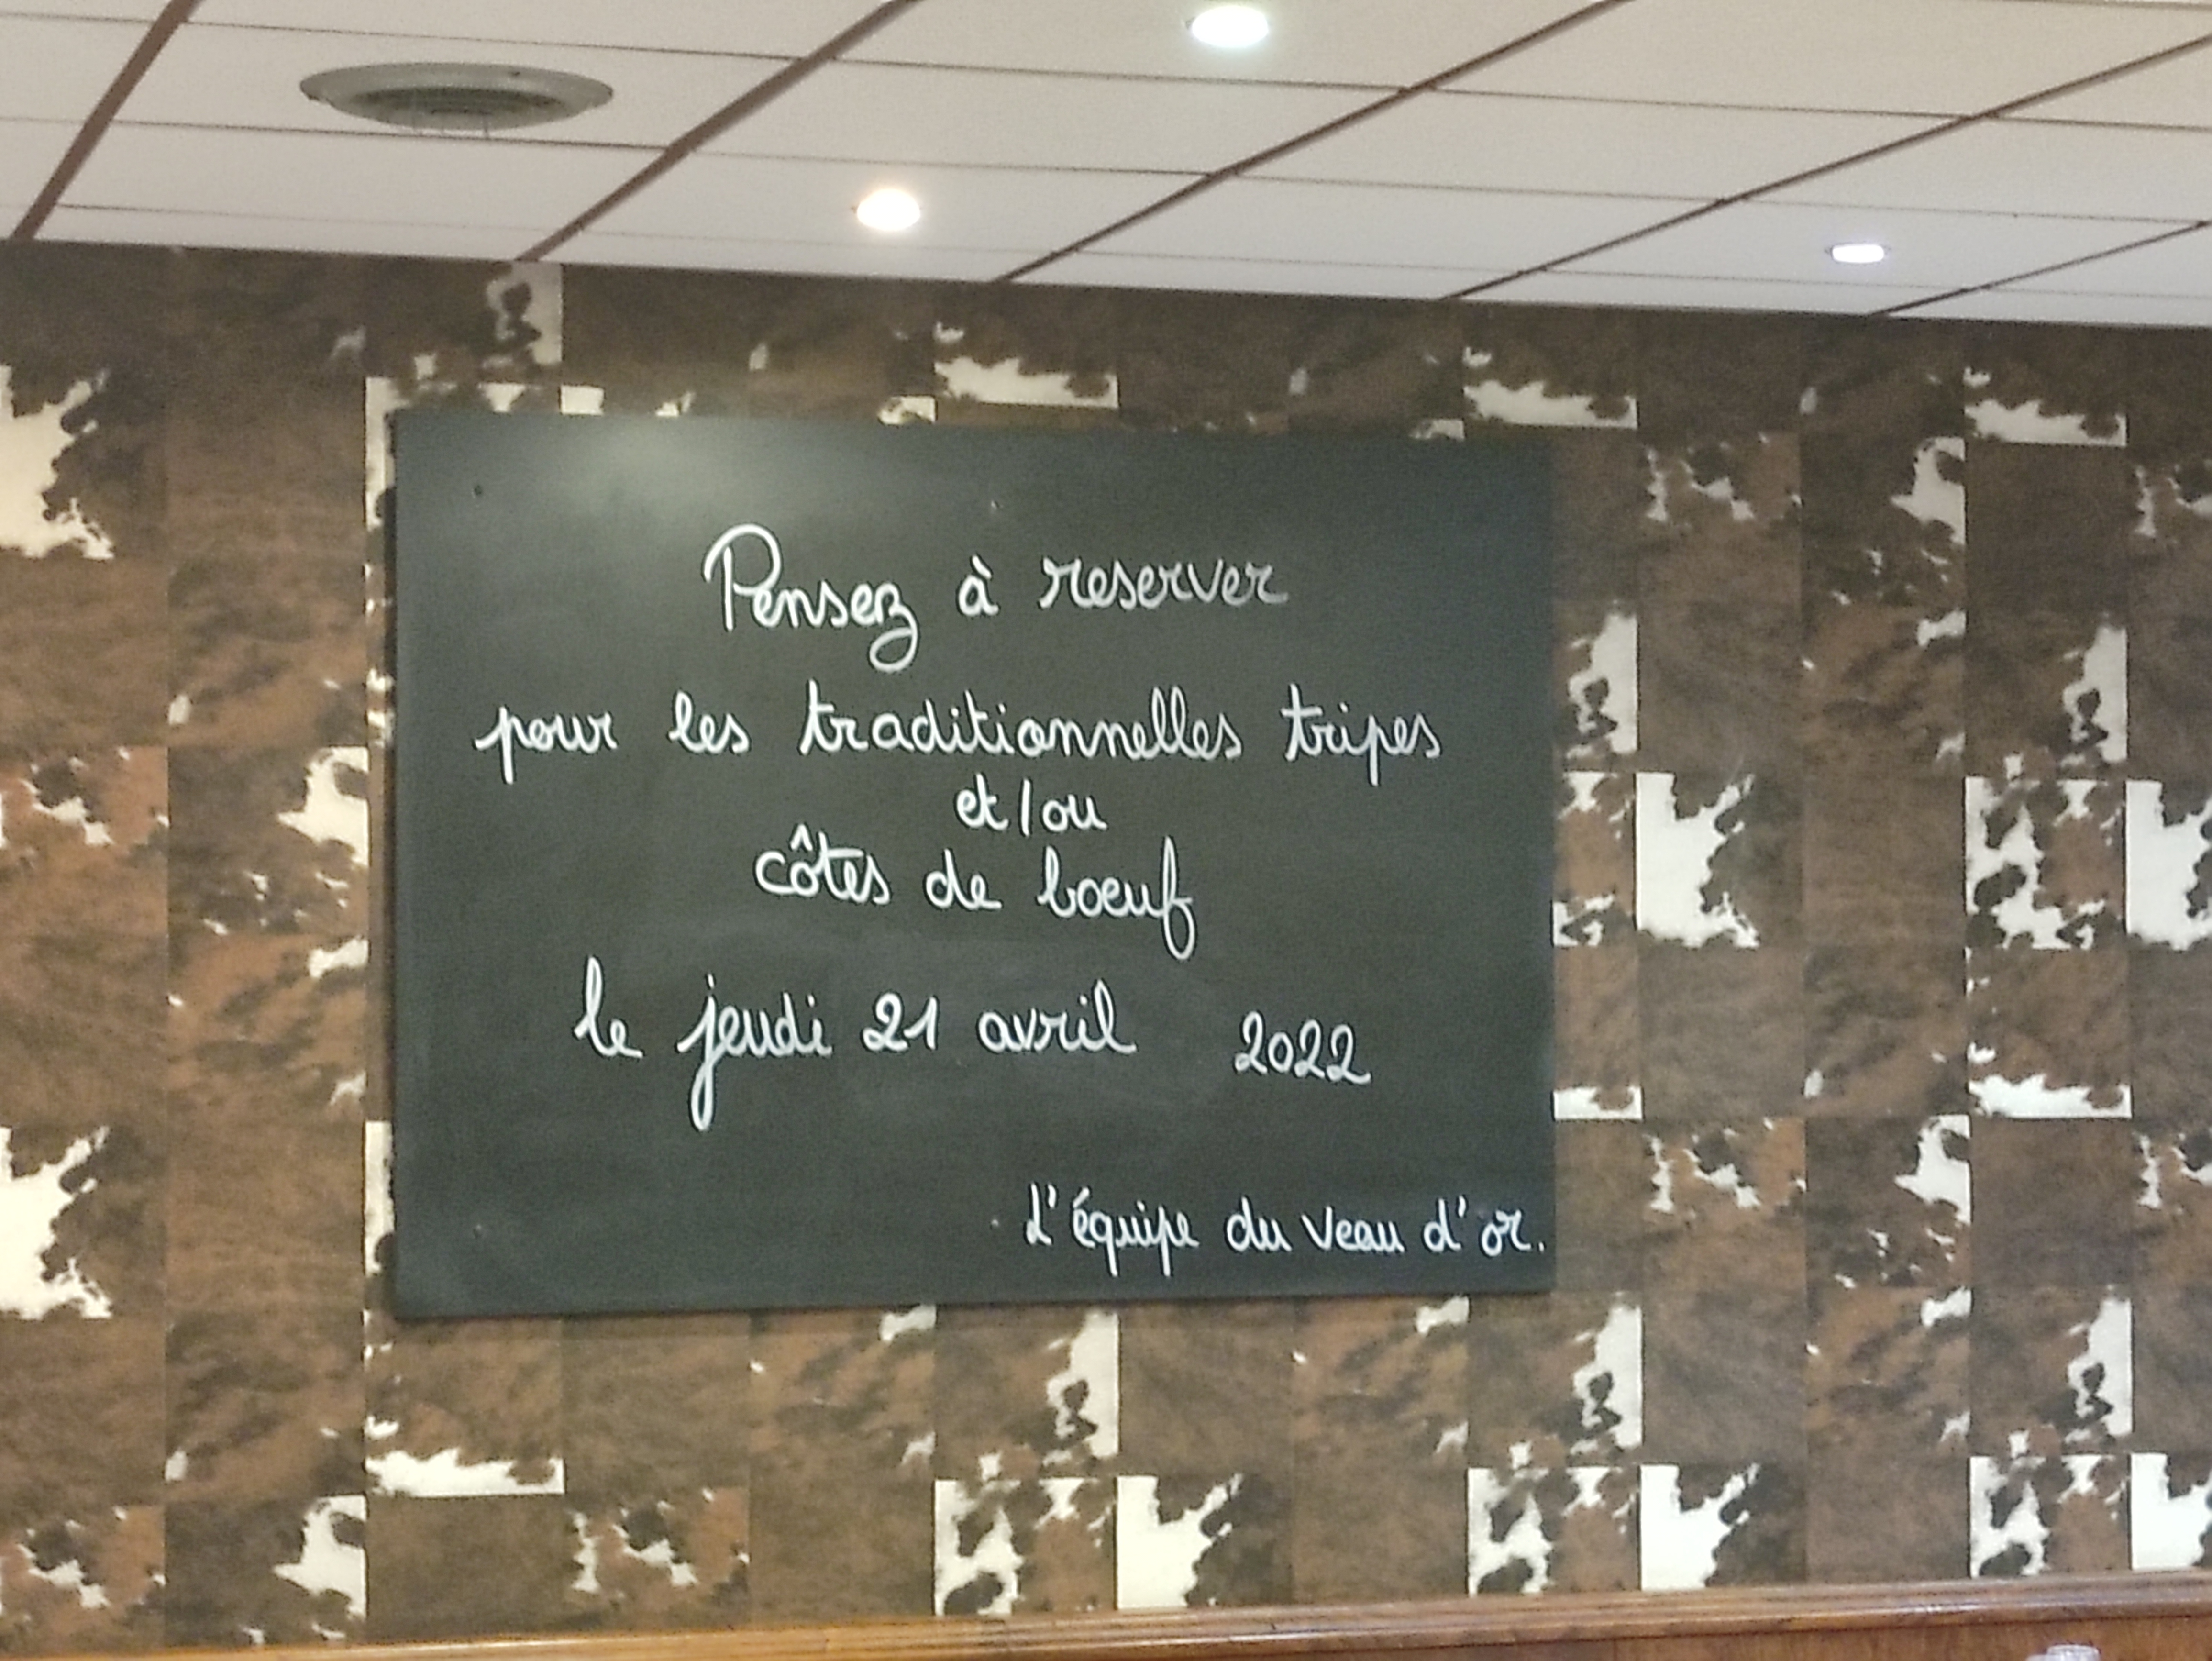 Pensez à reserver
pour les traditionnelles tripes
et/ou
côtes de boeuf
le jeudi 21 avril 2022
L'équipe du Veau d'or.